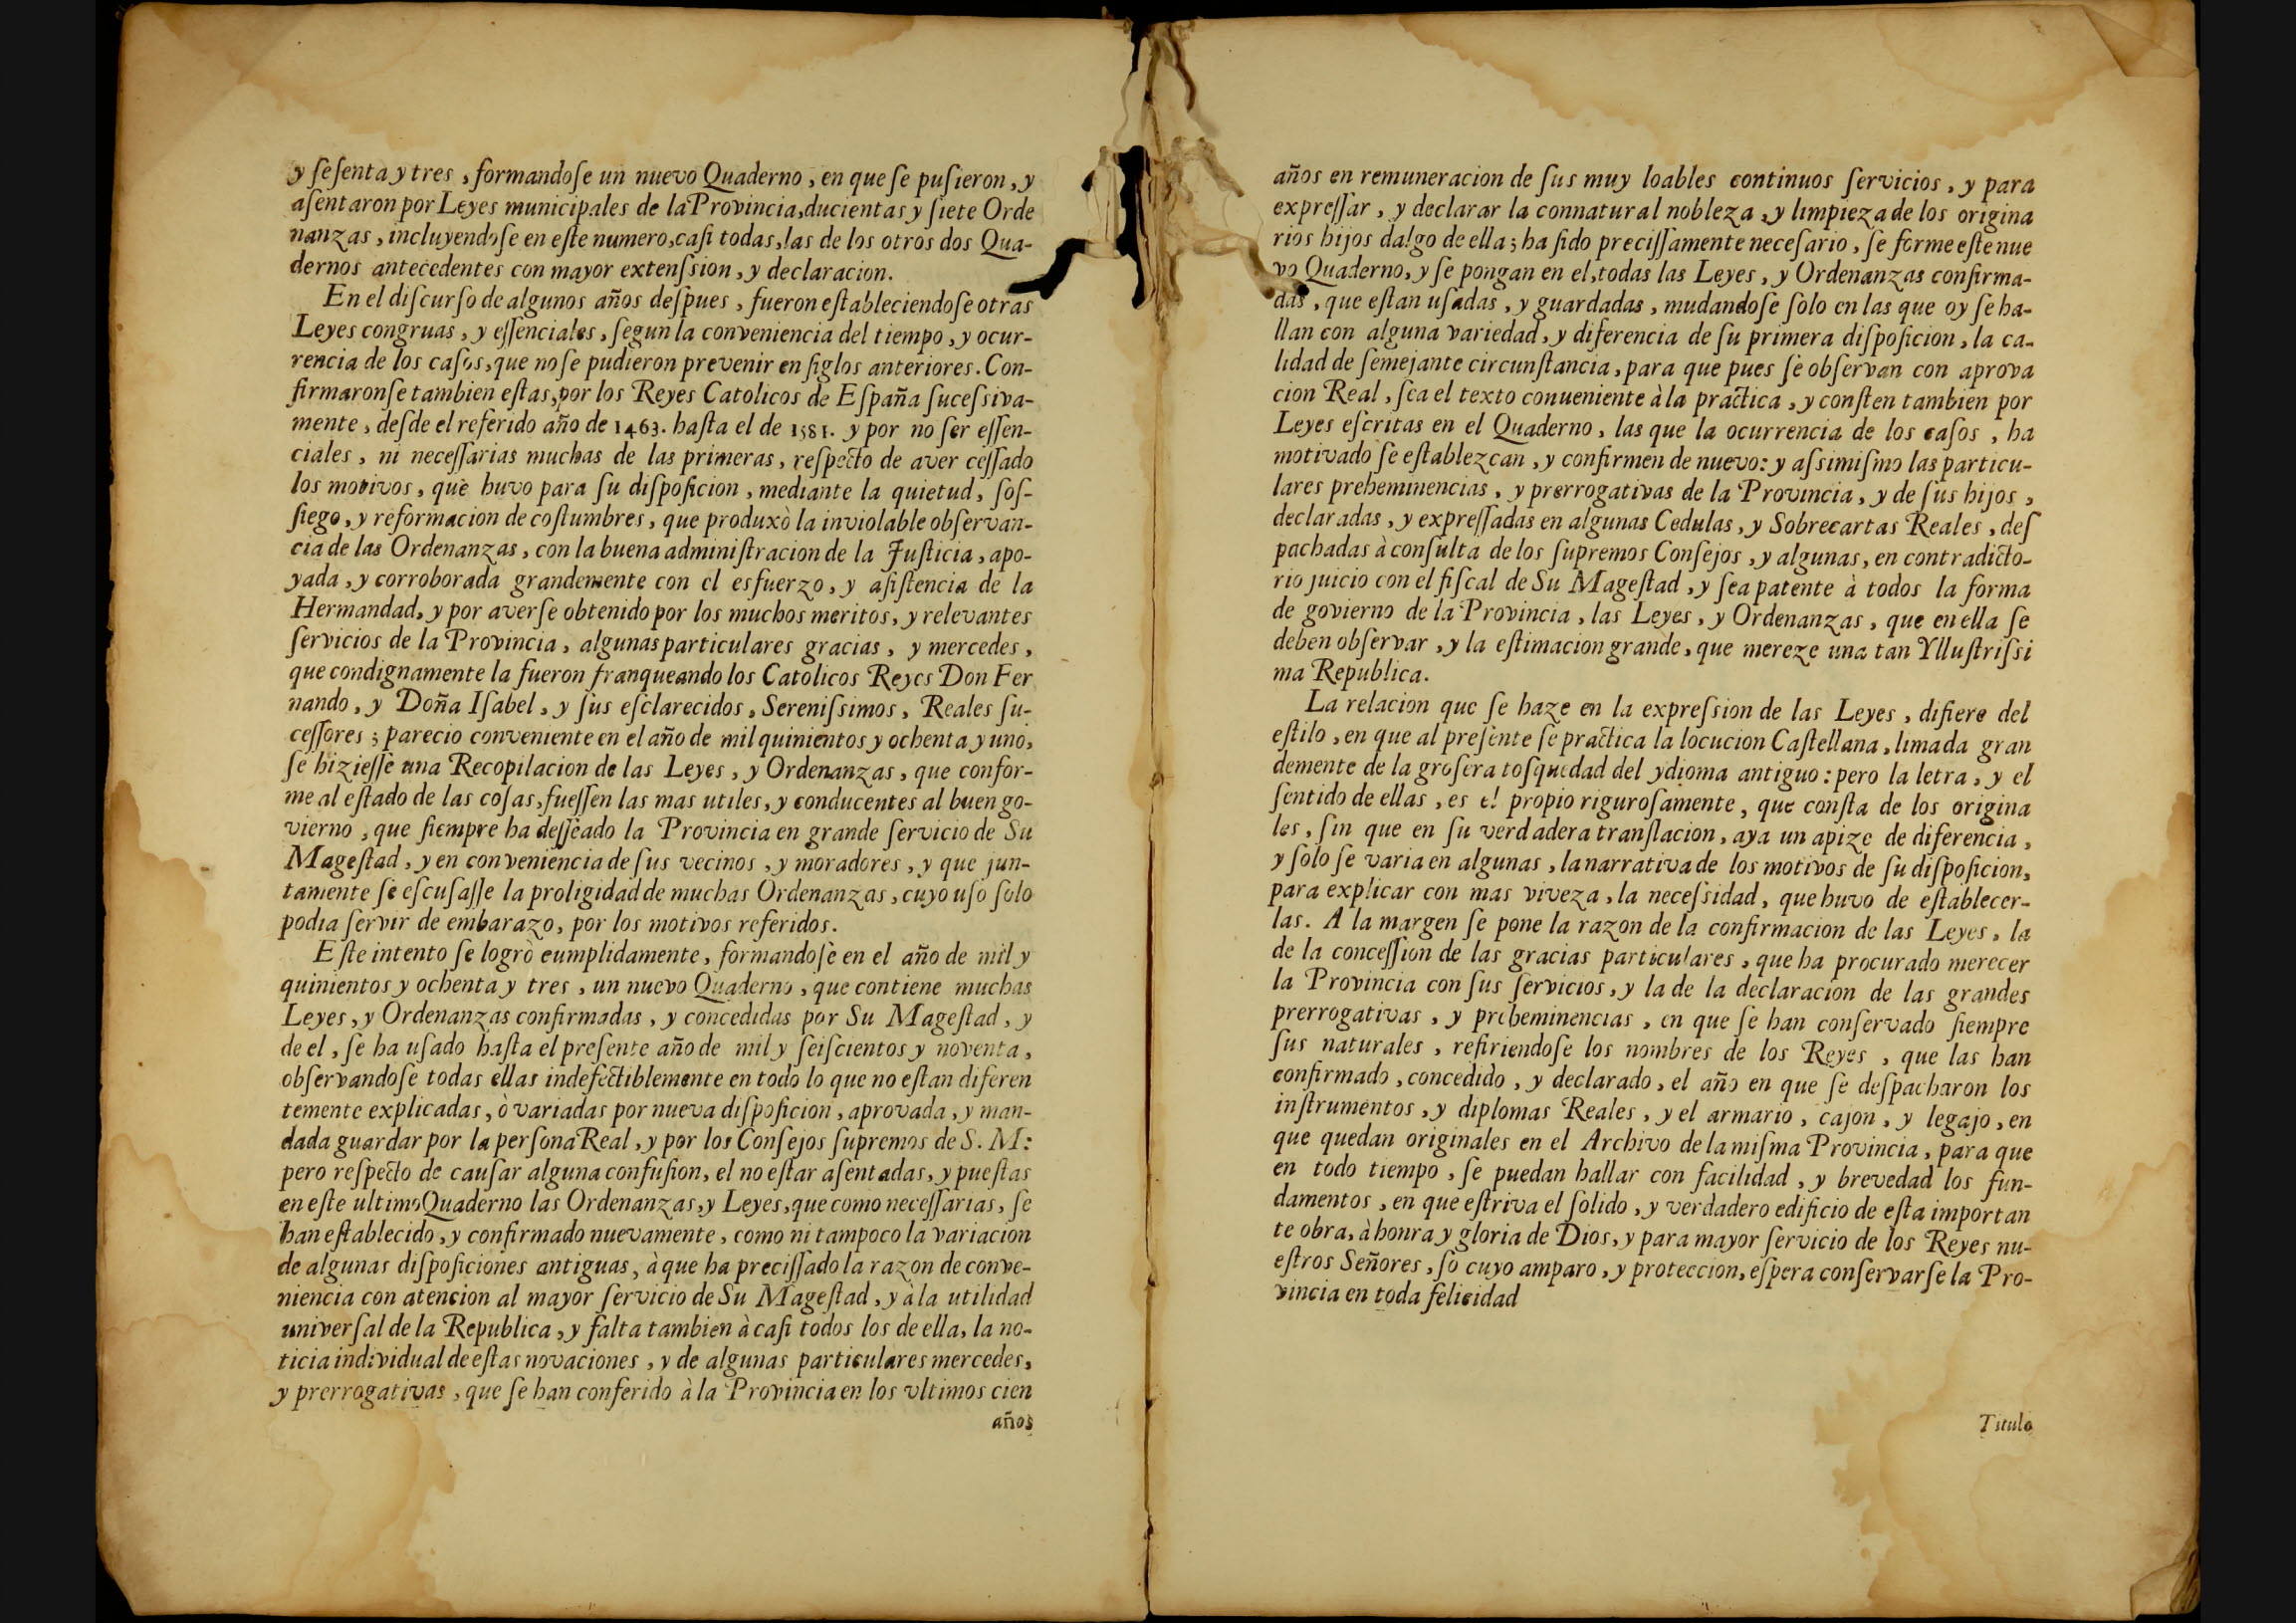 y ſeſenta y tres, formandoſe un nuevo Quaderno, en que ſe puſieron, y
aſentaron por Leyes municipales de la Provincia, ducientas y ſiete Orde
nanzas, incluyendoſe en eſte numero, caſi todas, las de los otros dos Qua-
dernos antecedentes con mayor extenſsion, y declaracion.
En el diſcurſo de algunos años deſpues, fueron eſtableciendoſe otras
Leyes congruas, y eſſenciales, ſegun la conveniencia del tiempo, y ocur-
rencia de los caſos, que no ſe pudieron prevenir en ſiglos anteriores. Con-
firmaronſe tambien eſtas, por los Reyes Catolicos de Eſpaña ſuceſsiva-
mente, deſde el referido año de 1463. haſta el de 1581. y por no ſer eſſen-
ciales, ni neceſſarias muchas de las primeras, reſpecto de aver ceſſado
los motivos, que huvo para ſu diſpoſicion, mediante la quietud, ſoſ-
ſiego, y reformacion de coſtumbres, que produxò la inviolable obſervan-
cia de las Ordenanzas, con la buena adminiſtracion de la Juſticia, apo-
yada, y corroborada grandemente con el esfuerzo, y aſiſtencia de la
Hermandad, y por averſe obtenido por los muchos meritos, y relevantes
ſervicios de la Provincia, algunas particulares gracias, y mercedes,
que condignamente la fueron franqueando los Catolicos Reyes Don Fer
nando, y Doña Iſabel, y ſus eſclarecidos, Sereniſsimos, Reales ſu-
ceſſores; parecio conveniente en el año de mil quinientos y ochenta y uno,
ſe hizieſſe una Recopilacion de las Leyes, y Ordenanzas, que confor-
me al eſtado de las coſas, fueſſen las mas utiles, y conducentes al buen go-
vierno, que ſiempre ha deſſeado la Provincia en grande ſervicio de Su
Mageſtad, y en conveniencia de ſus vecinos, y moradores, y que jun-
tamente ſe eſcuſaſſe la proligidad de muchas Ordenanzas, cuyo uſo ſolo
podia ſervir de embarazo, por los motivos referidos.
Eſte intento ſe logrò cumplidamente, formandoſe en el año de mil y
quinientos y ochenta y tres, un nuevo Quaderno, que contiene muchas
Leyes, y Ordenanzas confirmadas, y concedidas por Su Mageſtad, y
de el, ſe ha uſado haſta el preſente año de mil y ſeiſcientos y noventa,
obſervandoſe todas ellas indefectiblemente en todo lo que no eſtan diferen
temente explicadas, ò variadas por nueva diſpoſicion, aprovada, y man-
dada guardar por la perſona Real, y por los Conſejos ſupremos de S. M:
pero reſpecto de cauſar alguna confuſion, el no eſtar aſentadas, y pueſtas
en eſte ultimo Quaderno las Ordenanzas, y Leyes, que como neceſſarias, ſe
han eſtablecido, y confirmado nuevamente, como ni tampoco la variacion
de algunas diſpoſiciones antiguas, à que ha preciſſado la razon de conve-
niencia con atencion al mayor ſervicio de Su Mageſtad, y à la utilidad
univerſal de la Republica, y falta tambien à caſi todos los de ella, la no-
ticia individual de eſtas novaciones, y de algunas particulares mercedes,
y prerrogativas, que ſe han conferido à la Provincia en los vltimos cien
años
años en remuneracion de ſus muy loables continuos ſervicios, y para
expreſſar, y declarar la connatural nobleza, y limpieza de los origina
rios hijos dalgo de ella; ha ſido preciſſamente neceſario, ſe forme eſte nue
vo Quaderno, y ſe pongan en el, todas las Leyes, y Ordenanzas confirma-
das, que eſtan uſadas, y guardadas, mudandoſe ſolo en las que oy ſe ha-
llan con alguna variedad, y diferencia de ſu primera diſpoſicion, la ca-
lidad de ſemejante circunſtancia, para que pues ſe obſervan con aprova
cion Real, ſea el texto conueniente à la practica, y conſten tambien por
Leyes eſcritas en el Quaderno, las que la ocurrencia de los caſos, ha
motivado ſe eſtablezcan, y confirmen de nuevo: y aſsimiſmo las particu-
lares preheminencias, y prerrogativas de la Provincia, y de ſus hijos,
declaradas, y expreſſadas en algunas Cedulas, y Sobrecartas Reales, deſ
pachadas à conſulta de los ſupremos Conſejos, y algunas, en contradicto-
rio juicio con el fiſcal de Su Mageſtad, y ſea patente à todos la forma
de govierno de la Provincia, las Leyes, y Ordenanzas, que en ella ſe
deben obſervar, y la eſtimacion grande, que mereze una tan Ylluſtriſsi
ma Republica.
La relacion que ſe haze en la expreſsion de las Leyes, difiere del
eſtilo, en que al preſente ſe practica la locucion Caſtellana, limada gran
demente de la groſera toſquedad del ydioma antiguo: pero la letra, y el
ſentido de ellas, es el propio riguroſamente, que conſta de los origina
les, ſin que en ſu verdadera tranſlacion, aya un apize de diferencia,
y ſolo ſe varia en algunas, la narrativa de los motivos de ſu diſpoſicion,
para explicar con mas viveza, la neceſsidad, que huvo de eſtablecer-
las. A la margen ſe pone la razon de la confirmacion de las Leyes, la
de la conceſſion de las gracias particulares, que ha procurado merecer
la Provincia con ſus ſervicios, y la de la declaracion de las grandes
prerrogativas, y preheminencias, en que ſe han conſervado ſiempre
ſus naturales, refiriendoſe los nombres de los Reyes, que las han
confirmado, concedido, y declarado, el año en que ſe deſpacharon los
inſtrumentos, y diplomas Reales, y el armario, cajon, y legajo, en
que quedan originales en el Archivo de la miſma Provincia, para que
en todo tiempo, ſe puedan hallar con facilidad, y brevedad los fun-
damentos, en que eſtriva el ſolido, y verdadero edificio de eſta importan
te obra, à honra y gloria de Dios, y para mayor ſervicio de los Reyes nu-
eſtros Señores, ſo cuyo amparo, y proteccion, eſpera conſervarſe la Pro-
vincia en toda felicidad
Titulo